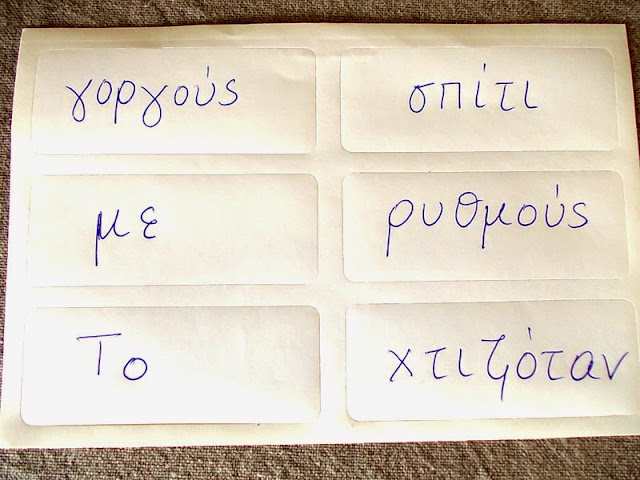 γοργούς σπίτι
με ρυθμούς
Το χτιζόταν